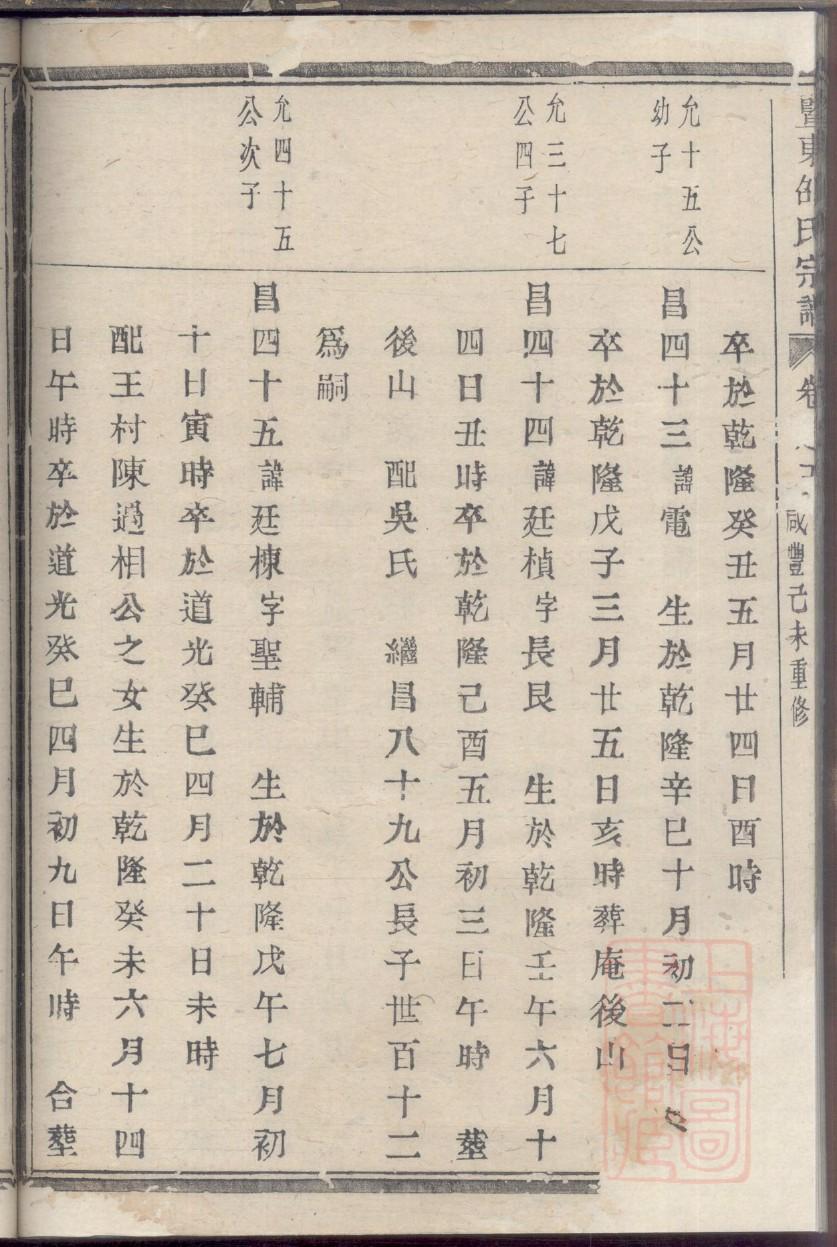 暨東邵氏宗譜 卷 咸豐己未重修
卒於乾隆癸丑五月廿四日酉時
允十五公
幼子
昌四十三諱電 生於乾隆辛巳十月初 日
卒於乾隆戊子三月廿五日亥時葬庵後山
允三十七
公四子
昌四十四諱廷楨字長艮 生於乾隆壬午六月十
四日丑時卒於乾隆己酉五月初三日午時 塟
後山 配吳氏 繼昌八十九公長子世百十二
爲嗣
允四十五
公次子
昌四十五諱廷棟字聖輔 生於乾隆戊午七月初
十日寅時卒於道光癸巳四月二十日未時
配王村陳過相公之女生於乾隆癸未六月十四
日午時卒於道光癸巳四月初九日午時 合塟